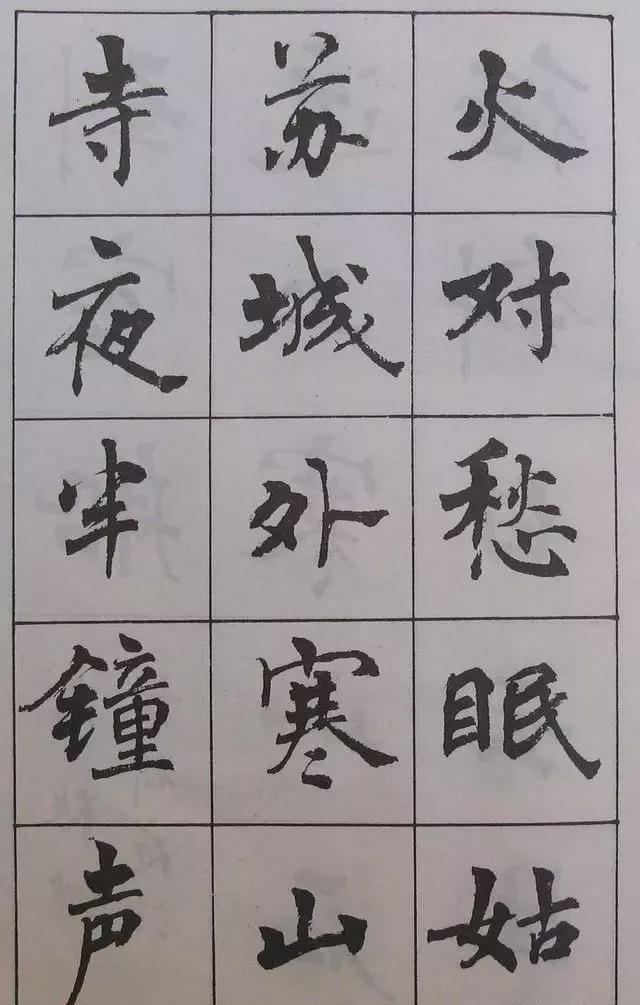 火对愁眠姑
苏城外寒山
寺夜半钟声